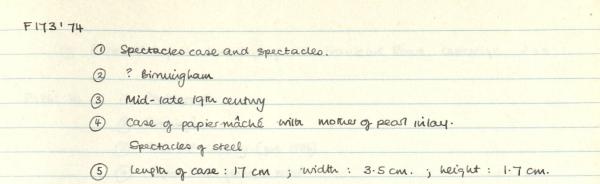 F173'74
① Spectacles case and spectacles.
② ? Birmingham
③ Mid-late 19th century
④ Case of papier mâché with mother of pearl inlay.
Spectacles of steel
⑤ Length of case : 17 cm ; width : 3.5 cm. ; height : 1.7 cm.